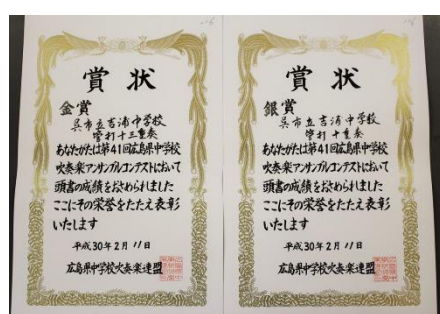 賞状
金賞
呉市立吉浦中学校
管打十三重奏
あなたがたは第41回広島県中学校
吹奏楽アンサンブルコンテストにおいて
頭書の成績をおさめられました
ここにその栄誉をたたえ表彰
いたします
平成30年2月11日
広島県中学校吹奏楽連盟
賞状
銀賞
呉市立吉浦中学校
管打十重奏
あなたがたは第41回広島県中学校
吹奏楽アンサンブルコンテストにおいて
頭書の成績をおさめられました
ここにその栄誉をたたえ表彰
いたします
平成30年2月11日
広島県中学校吹奏楽連盟